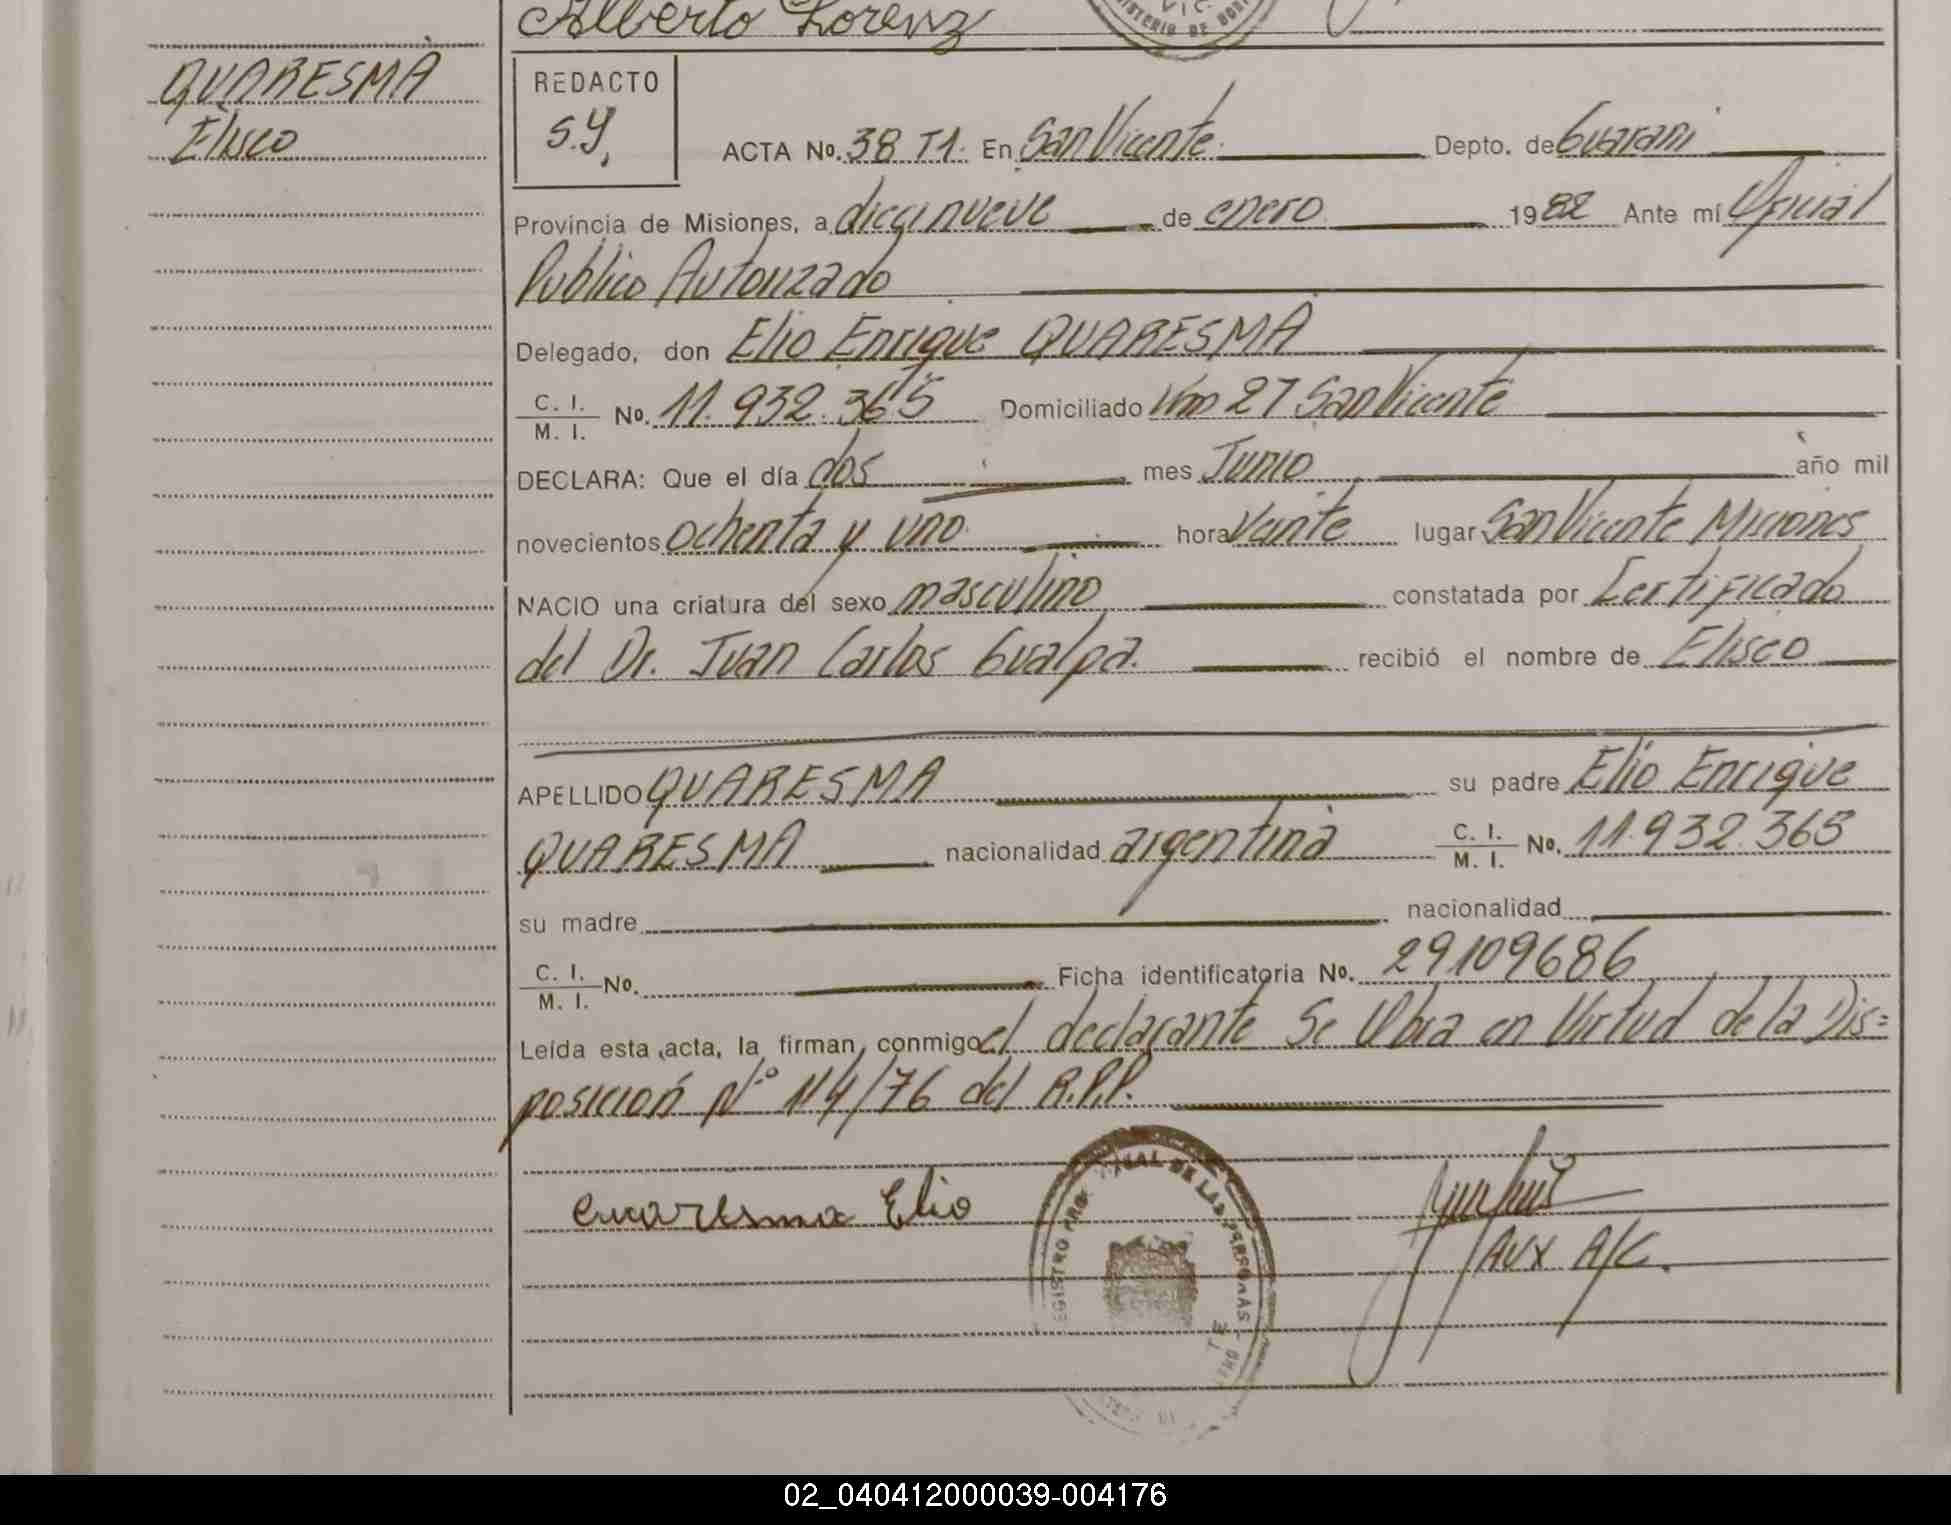 Alberto Lorenz
QUARESMA
Eliseo
REDACTO
S.Y.
ACTA No. 38 T1. En San Vicente. Depto. de Guarani
Provincia de Misiones, a diecinueve de enero 1982 Ante mí Oficial
Publico Autorizado
Delegado, don Elio Enrique QUARESMA
C. I. / M. I. No. 11.932.365 Domiciliado Km 27 San Vicente
DECLARA: Que el día dos mes Junio año mil
novecientos ochenta y uno hora veinte lugar San Vicente Misiones
NACIO una criatura del sexo masculino constatada por Certificado
del Dr. Juan Carlos Gualpa. recibió el nombre de Eliseo
APELLIDO QUARESMA su padre Elio Enrique
QUARESMA nacionalidad argentina C. I. / M. I. No. 11.932.365
su madre nacionalidad
C. I. / M. I. No. Ficha identificatoria No. 29109686
Leída esta acta, la firman conmigo el declarante Se Obra en Virtud de la Dis=
posición Nº 114/76 del R.P.P.
Cuaresma Elio
DE LAS PERSONAS
AUX A/C.
02_040412000039-004176